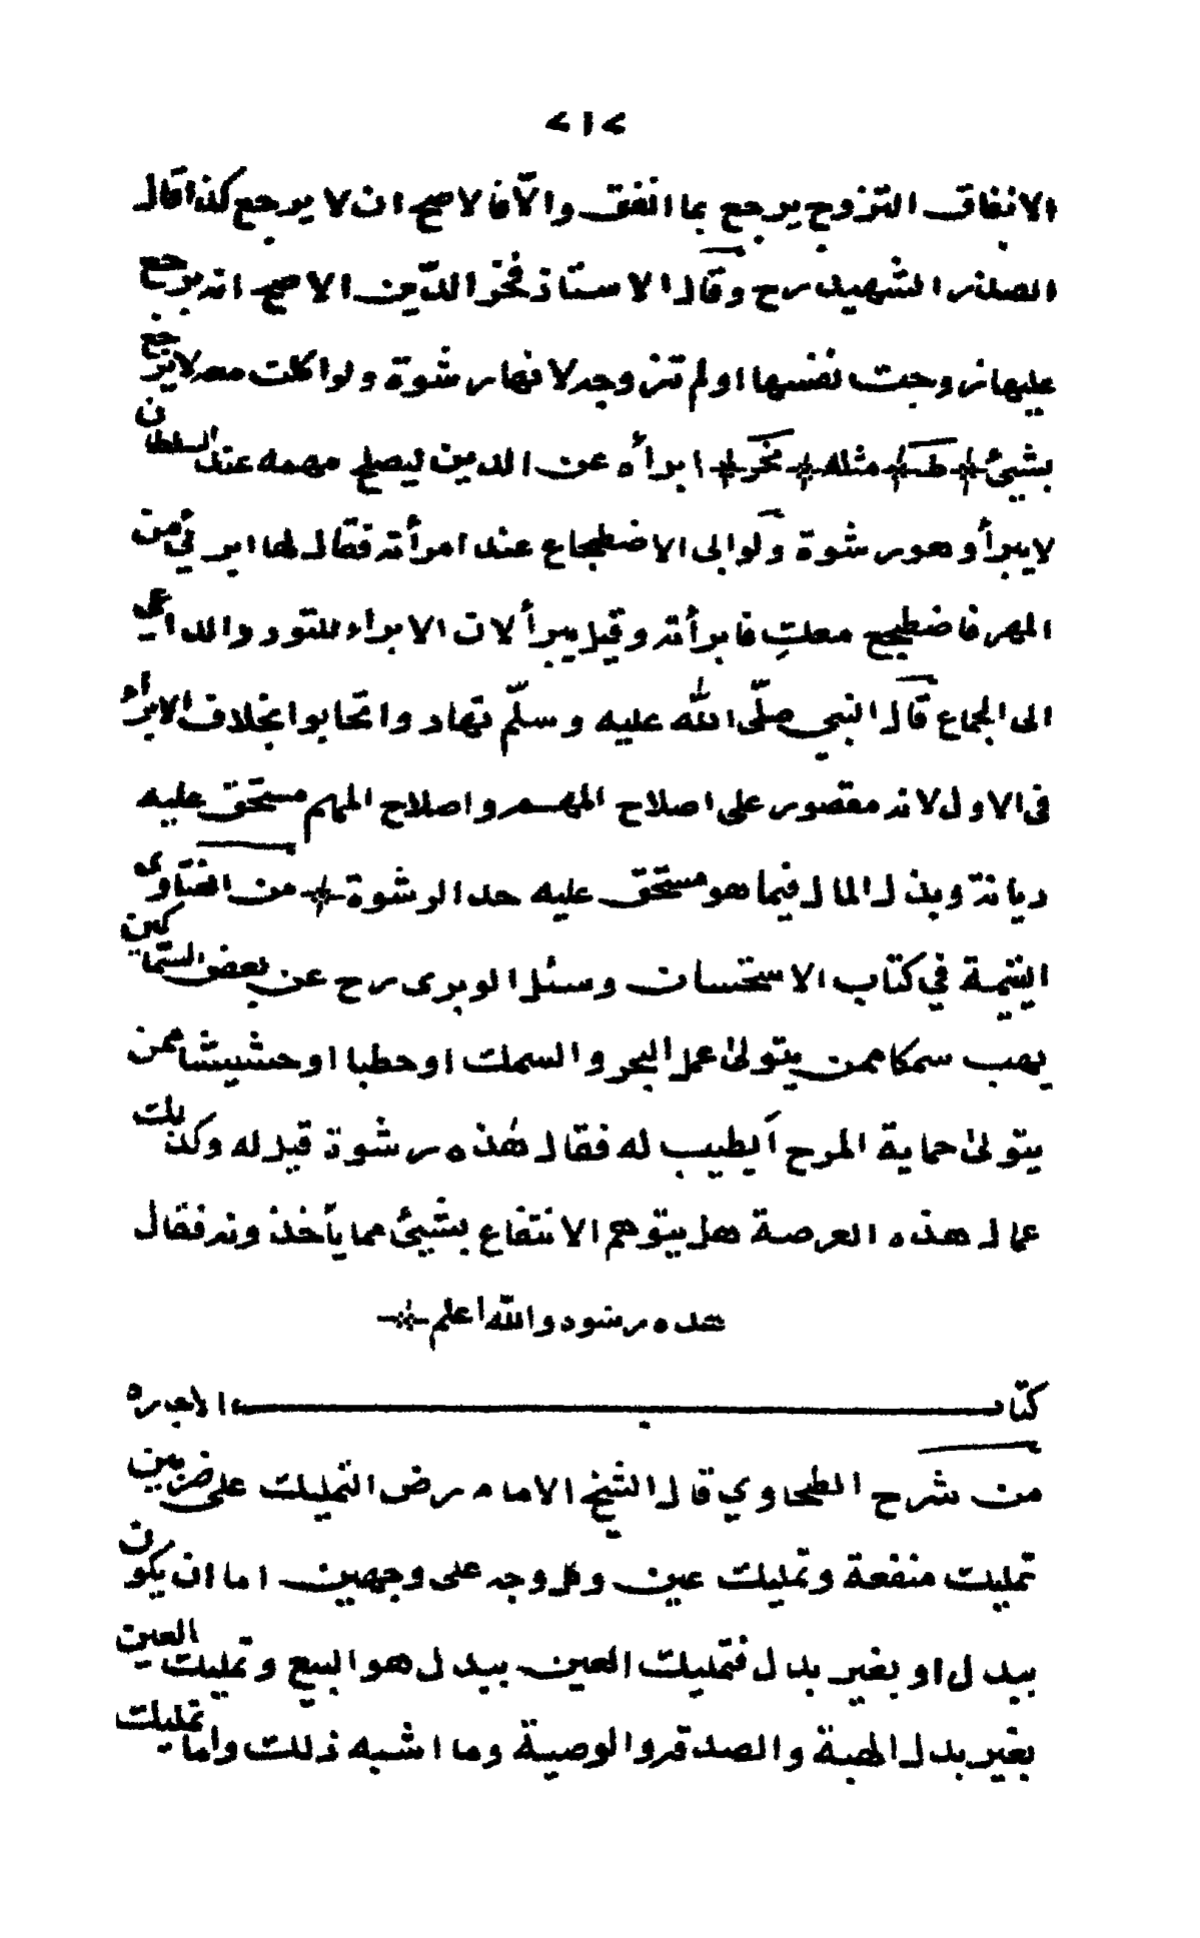 ٢١٢
الانفاق التزوج يرجع بما انفق والّا فالاصح ان لا يرجع كذا قال
الصدر الشهيد رح وقال الاستاذ فخر الدّين الاصح انه يرجع
عليها زوجت نفسها او لم تتزوجه لانها رشوة ولو اكلت معه لا يرجع
بشيئ طـ مثله نحر ابرأه عن الدين ليصلح مهمه عند السلطان
لا يبرأ وهو رشوة ولو ابى الاضطجاع عند امرأته فقال لها ابرئي من
المهر فاضطجع معكِ فابرأته وقيل يبرأ لان الابراء للتودد والداعي
الى الجماع قال النبي صلّى الله عليه وسلّم تهادوا تحابوا بخلاف الابراء
فى الاول لانه مقصور على اصلاح المهم واصلاح المهم مستحق عليه
ديانة وبذل المال فيما هو مستحق عليه حد الرشوة من الفتاوى
اليتيمة في كتاب الاستحسان وسئل الوبرى رح عن بعض السّماكين
يهب سمكا ممن يتولى عمل البحر والسمك او حطبا او حشيشا ممن
يتولى حماية المرح أيطيب له فقال هذه رشوة قبل له وكذلك
عمال هذه العرصة هل يتوهم الانتفاع بشيئ مما يأخذونه فقال
هذه رشوة والله اعلم
كتاب الاجارة
من شرح الطحاوي قال الشيخ الامام رض التمليك على ضربين
تمليك منفعة وتمليك عين وكل وجه على وجهين اما ان يكون
ببدل او بغير بدل فتمليك العين ببدل هو البيع وتمليك العين
بغير بدل الهبة والصدقة والوصية وما اشبه ذلك واما تمليك